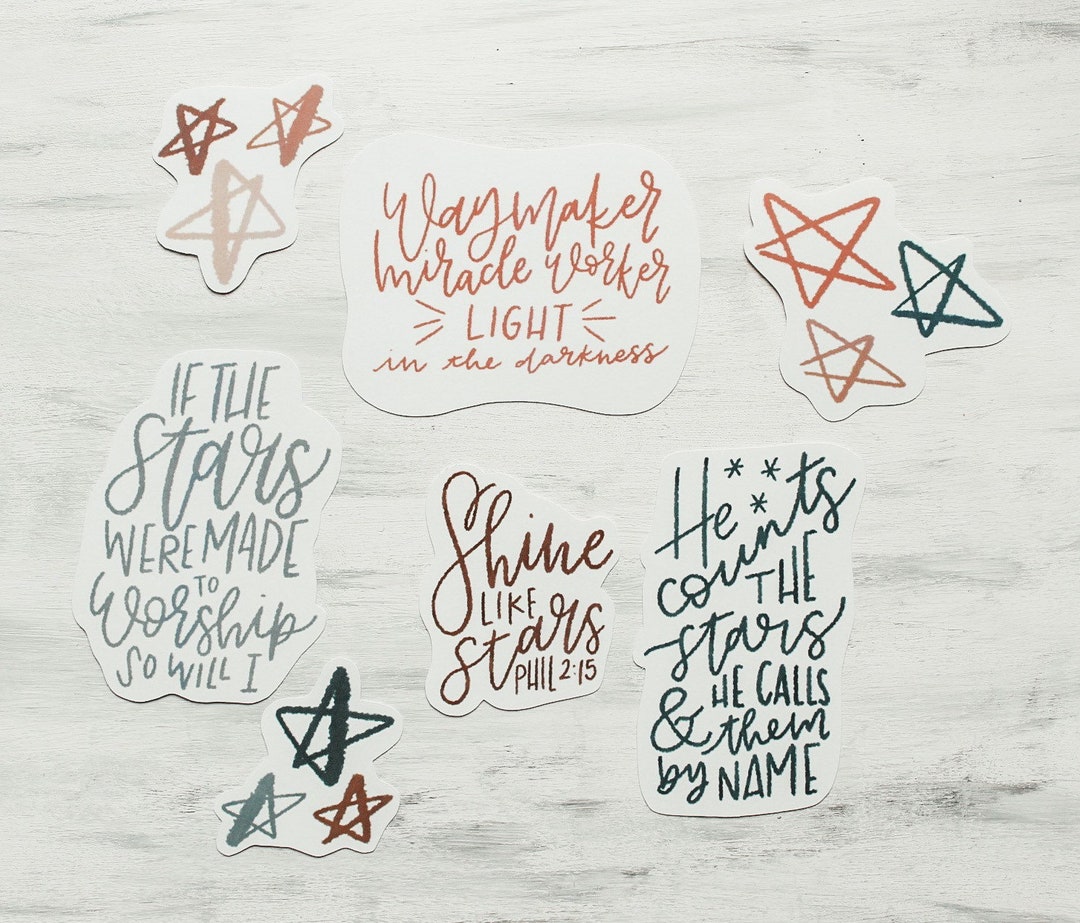 Waymaker
miracle worker
LIGHT
in the darkness
IF THE
Stars
WERE MADE
TO
Worship
SO WILL I
Shine
LIKE
stars
PHIL 2:15
He
counts
THE
stars
HE CALLS
& them
by NAME